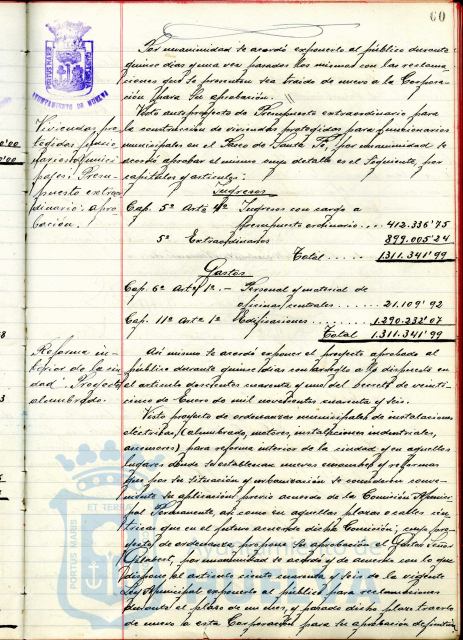 60
PORTUS MARIS
AYUNTAMIENTO DE HUELVA
Por unanimidad se acordó exponerlo al público durante
quince días y una vez pasados los mismos con las reclama-
ciones que se presenten sea traido de nuevo a la Corpora-
ción para su aprobación.
Viviendas pro-
tegidas funcio-
narios munici-
pales: Presu-
puesto extraor-
dinario: apro-
bación.
Visto anteproyecto de Presupuesto extraordinario para
la construcción de viviendas protegidas para funcionarios
municipales en el Paseo de Santa Fé, por unanimidad se
acordó aprobar el mismo cuyo detalle es el siguiente, por
capítulos y artículos:
Ingresos
Cap. 5º Artº 4º Ingresos con cargo a
Presupuesto ordinario... 412.336'75
5º Extraordinarios 899.005'24
Total..... 1.311.341'99
Gastos
Cap. 6º Artº 1º.- Personal y material de
oficinas centrales..... 21.109'92
Cap. 11º Artº 1º Edificaciones..... 1.290.232'07
Total 1.311.341'99
Reforma in-
terior de la ciu-
dad. Proyecto
alumbrado.
Así mismo se acordó exponer el proyecto aprobado al
público durante quince días con arreglo a lo dispuesto en
el artículo doscientos cuarenta y uno del decreto de veinti-
cinco de Enero de mil novecientos cuarenta y seis.
Visto proyecto de ordenanzas municipales de instalaciones
eléctricas (alumbrado, motores, instalaciones industriales,
ascensores) para reforma interior de la ciudad y en aquellos
lugares donde se establezcan nuevos ensanches y reformas
que por su situación y urbanización se consideren conve-
niente su aplicación previo acuerdo de la Comisión Munici-
pal Permanente, así como en aquellas plazas o calles cén-
tricas que en el futuro acuerde dicha Comisión; cuyo pro-
yecto de ordenanzas propone su aprobación el Gestor Señor
por unanimidad se acordó y de acuerdo con lo que
dispone el artículo ciento cuarenta y seis de la vigente
Ley Municipal exponerlo al público para reclamaciones
durante el plazo de un mes, y pasado dicho plazo traerlo
de nuevo a esta Corporación para su aprobación definitiva
PORTUS MARIS
ET TERRAE
Ayuntamiento de
HUELVA